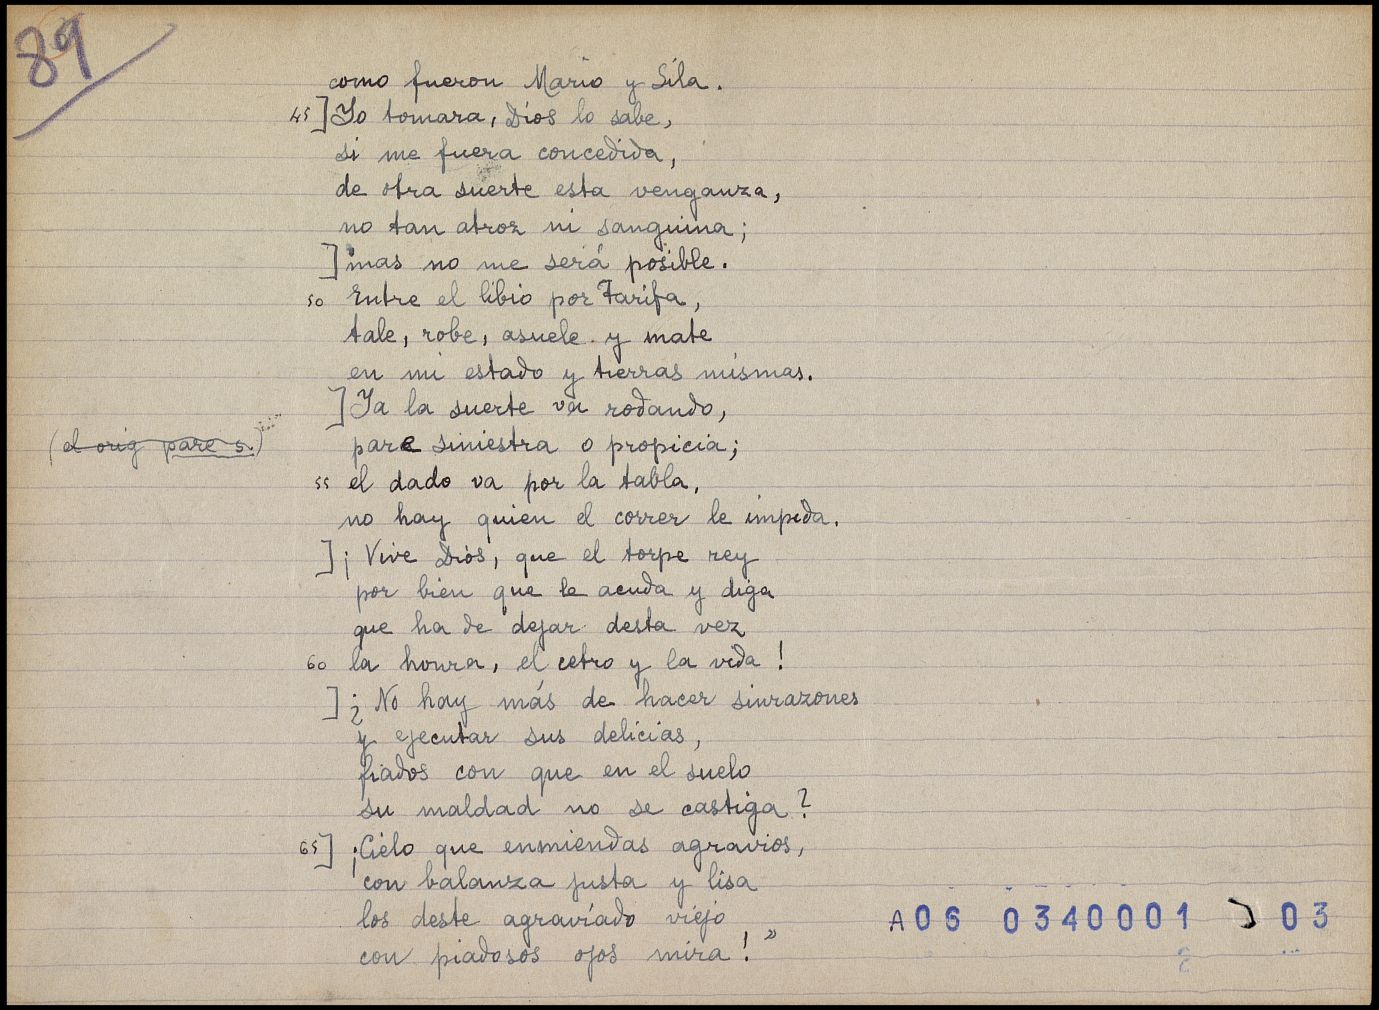 89
como fueron Mario y Sila.
45 ] Yo tomara, Dios lo sabe,
si me fuera concedida,
de otra suerte esta venganza,
no tan atroz ni sanguina;
] mas no me será posible.
50 Entre el libio por Tarifa,
tale, robe, asuele y mate
en mi estado y tierras mismas.
] Ya la suerte va rodando,
(el orig pare s.) pare siniestra o propicia;
55 el dado va por la tabla,
no hay quien el correr le impida.
] ¡Vive Dios, que el torpe rey
por bien que le acuda y diga
que ha de dejar desta vez
60 la honra, el cetro y la vida!
] ¿No hay más de hacer sinrazones
y ejecutar sus delicias,
fiados con que en el suelo
su maldad no se castiga?
65 ] ¡Cielo que enmiendas agravios,
con balanza justa y lisa
los deste agraviado viejo
con piadosos ojos mira!"
A06 0340001 03
2